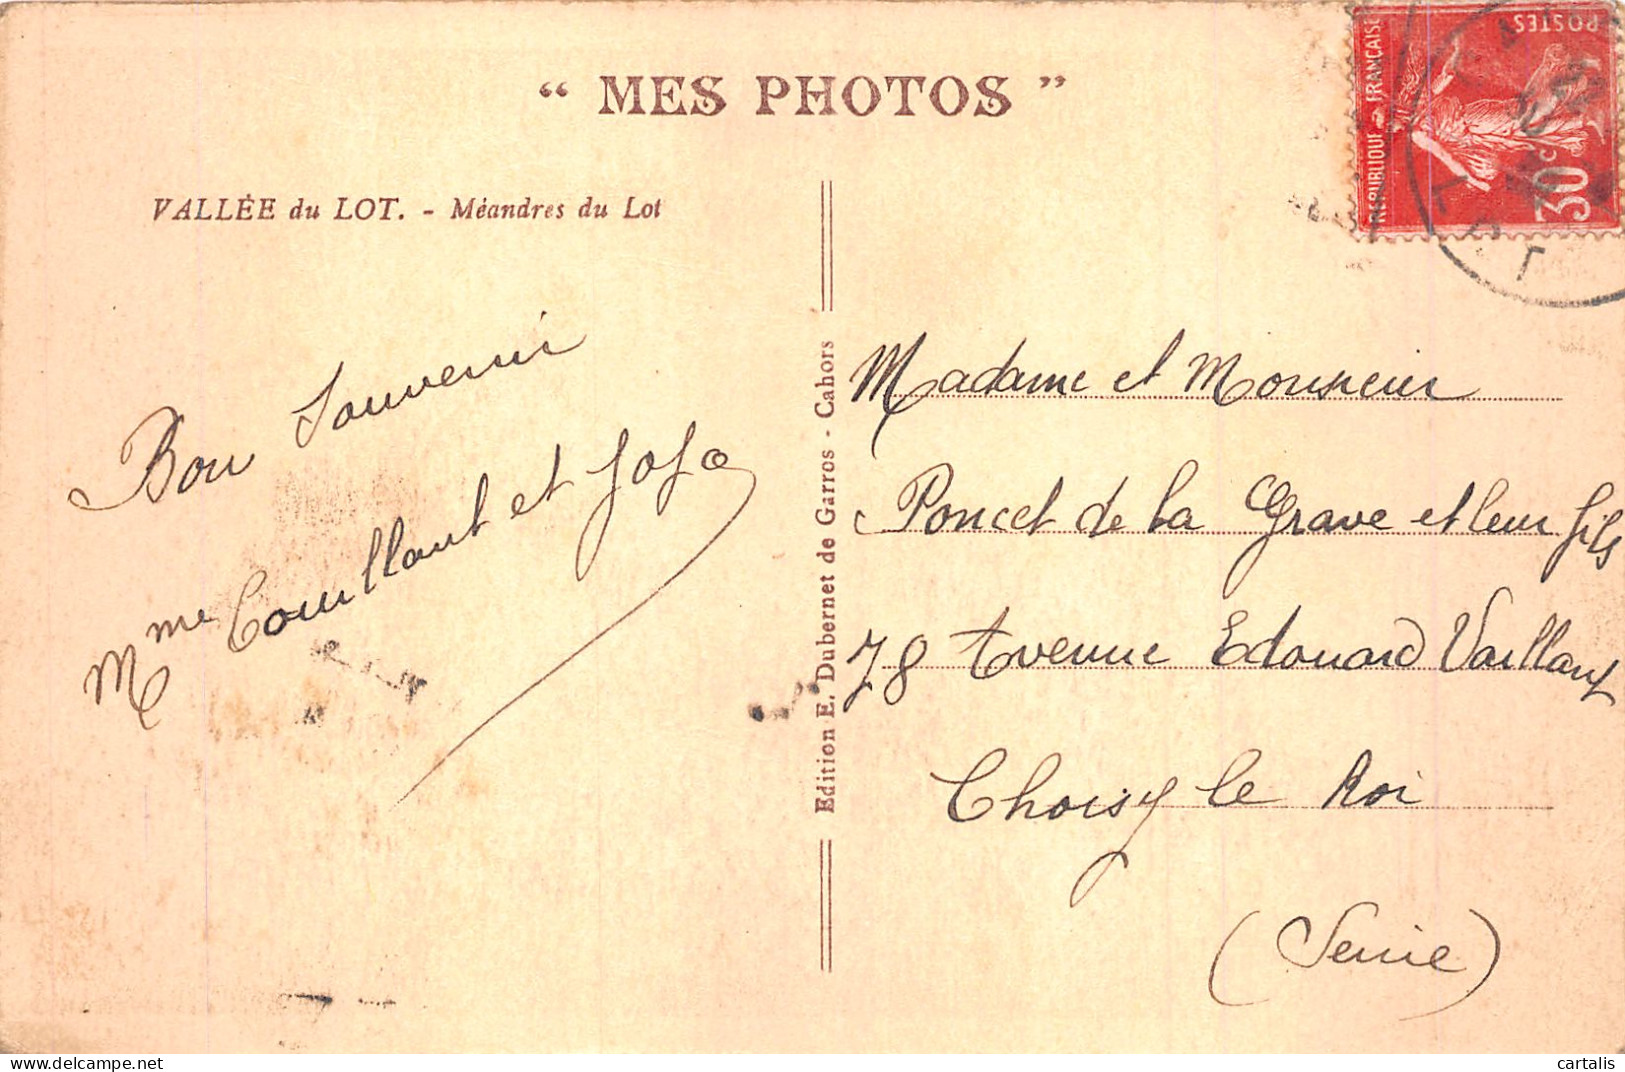 “ MES PHOTOS ”
VALLÉE du LOT. - Méandres du Lot
Bon Souvenir
Mme Couillaut et JoJo
Edition E. Dubernet de Garros - Cahors
REPUBLIQUE FRANÇAISE
POSTES
30c
LOT
Madame et Monsieur
Poncet de la Grave et leur fils
78 Avenue Edouard Vaillant
Choisy le Roi
(Seine)
cartalis